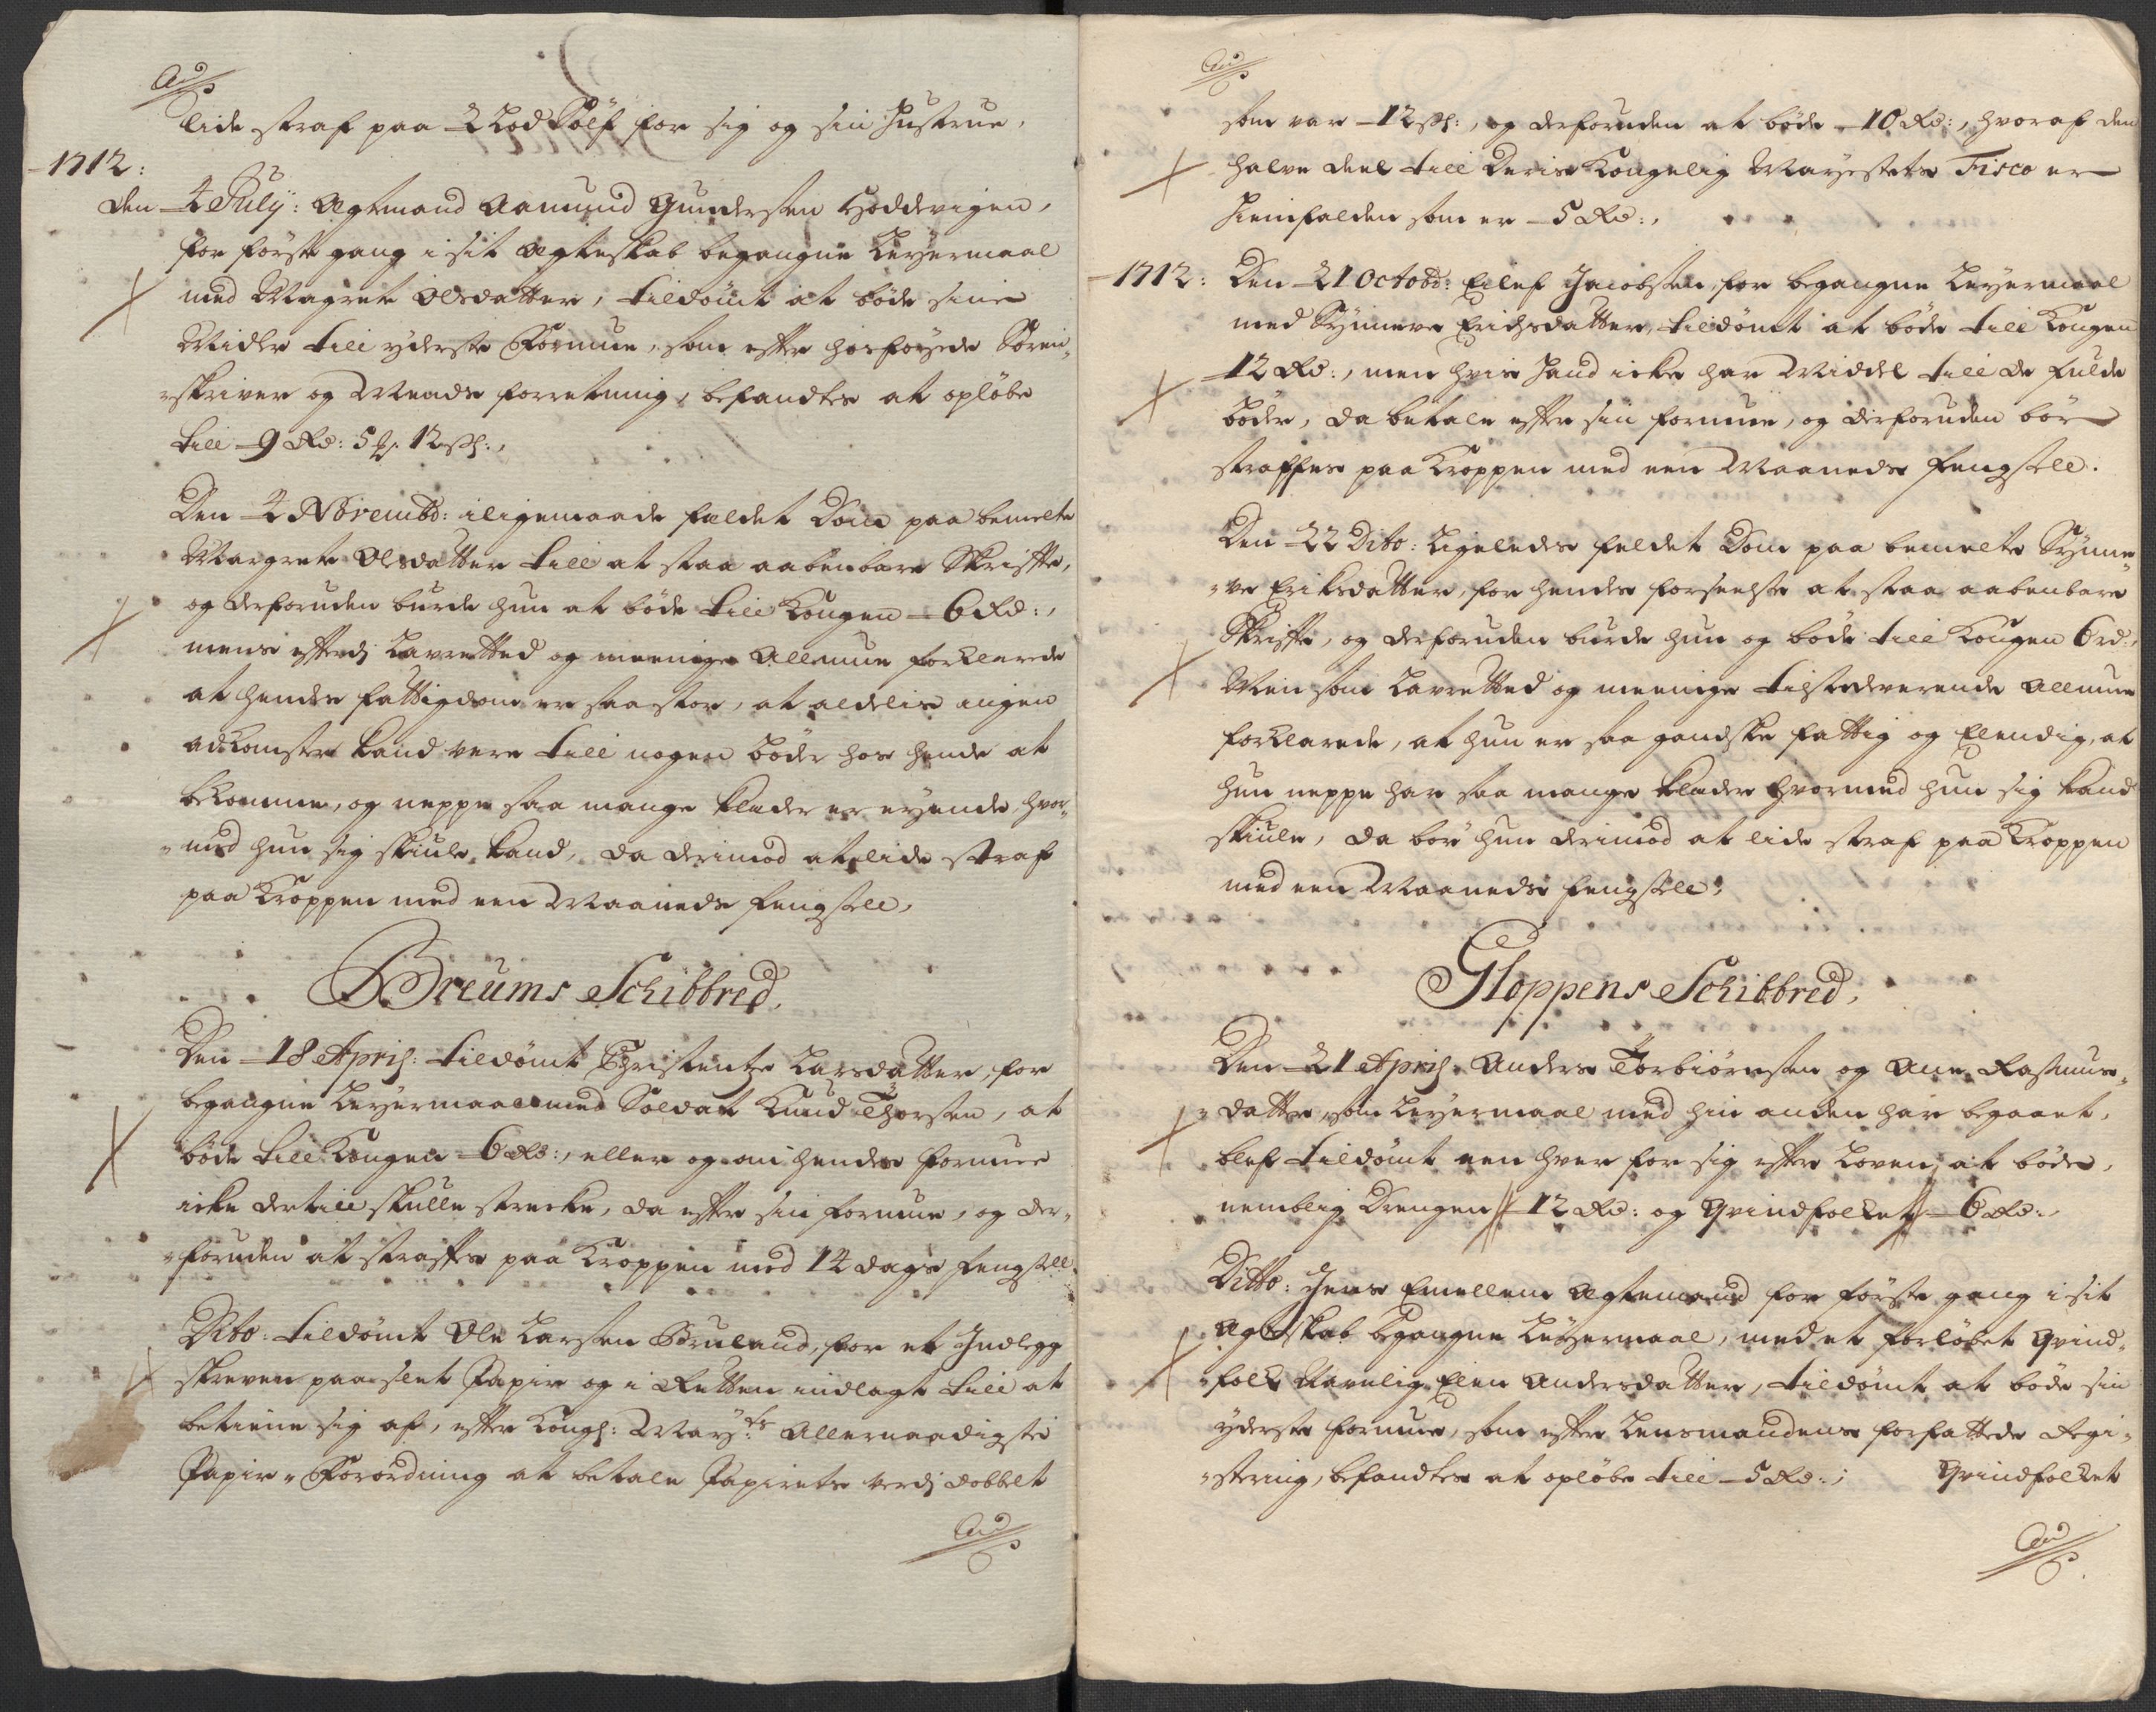 lide straf paa 2 Lod Sölf for sig og sin Hustrue,
1712:
den 4 July: Ægtemand Aamund Gundersen Hoddevigen,
for förste gang i sit Ægteskab begangne Leyermaal
med Magrete Olsdatter, tildömt at böde sine
Midler till yderste Formue, som efter hosföyede Soren-
skriver og Mends forretning, befandtes at oplöbe
till 9 Rd: 5 12 sh:,
Den 4 Novembr: iligemaade faldet Dom paa bemelte
Margrete Olsdatter till at staa aabenbare Skriffte,
og derforuden burde hun at böde till Kongen 6 Rd:,
mens efterdj Lavretted og meenige Allmue forklarede
at hendes fattigdom er saa stor, at aldelis ingen
adkomster kand vere till nogen böder hos hende at
bekomme, og neppe saa mange klæder er eyende hvor-
med hun sig skiule kand, da derimod at lide straf
paa Kroppen med een Maaneds fengsell,
Breums Schibbred,
Den 18 April: tildömt Christentze Larsdatter, for
begangne Leyermaal med Soldat Knud Thorsen, at
böde till Kongen 6 Rd:, eller og om hendes formue
icke dertill skulle strecke, da efter sin formue, og der-
foruden at straffes paa Kroppen med 14 dags fengsell
Dito: tildömt Ole Larsen Föruland, for et Indlegg
skreven paa slet Papir og i Retten indlagt till at
betiene sig af, efter Kongl: May:ts Allernaadigste
Papir-Forordning at betale Papirets verdj dobbelt
som var 12 sh:, og derforuden at böde 10 Rd:, hvoraf den
halve deel till Deris Kongelig Mayestets Fisco er
hiemfalden som er 5 Rd:,
1712: Den 21 Octobr: Eilef Jacobsen, for begangne Leyermaal
med Synneve Erichsdatter, tildömt at böde till Kongen
12 Rd:, men hvis hand icke har Middel till de fulde
böder, da betale efter sin formue, og derforuden bör
straffes paa Kroppen med een Maaneds fengsell.
Den 22 Dito: Ligeledes feldet Dom paa bemelte Synne-
ve Eriksdatter, for hendes forseelse at staa aabenbare
Skriffte, og derforuden burde hun og böde till Kongen 6 rd:,
Men som Lavretted og meenige tilstedeverende Allmue
forklarede, at hun er saa gandske fattig og Elendig, at
hun neppe har saa mange klæder hvormed hun sig kand
skiule, da bör hun derimod at lide straf paa Kroppen
med een Maaneds fengsell,
Gloppens Schibbred,
Den 21 April: Anders Torbiörnsen og Ane Rasmus-
datter, som Leyermaal med hin anden har begaaet,
blef tildömt een hver for sig efter Loven at böde,
nemblig Drengen 12 Rd: og Qvindfolket 6 Rd:,
Ditto: Jens Emellem Ægtemand for förste gang i sit
Ægteskab begangne Leyermaal, med et forlöbet Qvind-
folk Navnlig Elen Andersdatter, tildömt at böde sin
yderste formue, som efter Lensmandens forfattede Regi-
stering, befandtes at oplöbe till 5 Rd:; Qvindfolket